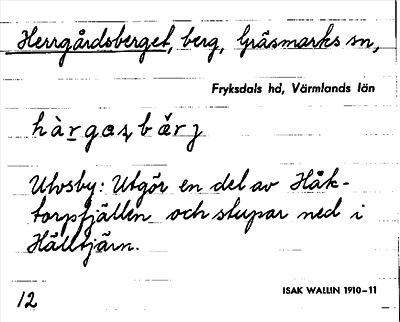 Herrgårdsberget, berg, Gräsmarks sn,
Fryksdals hd, Värmlands län
Ulvsby: Utgör en del av Håk-
torpfjällen och stupar ned i
Hälltjärn.
12
ISAK WALLIN 1910–11